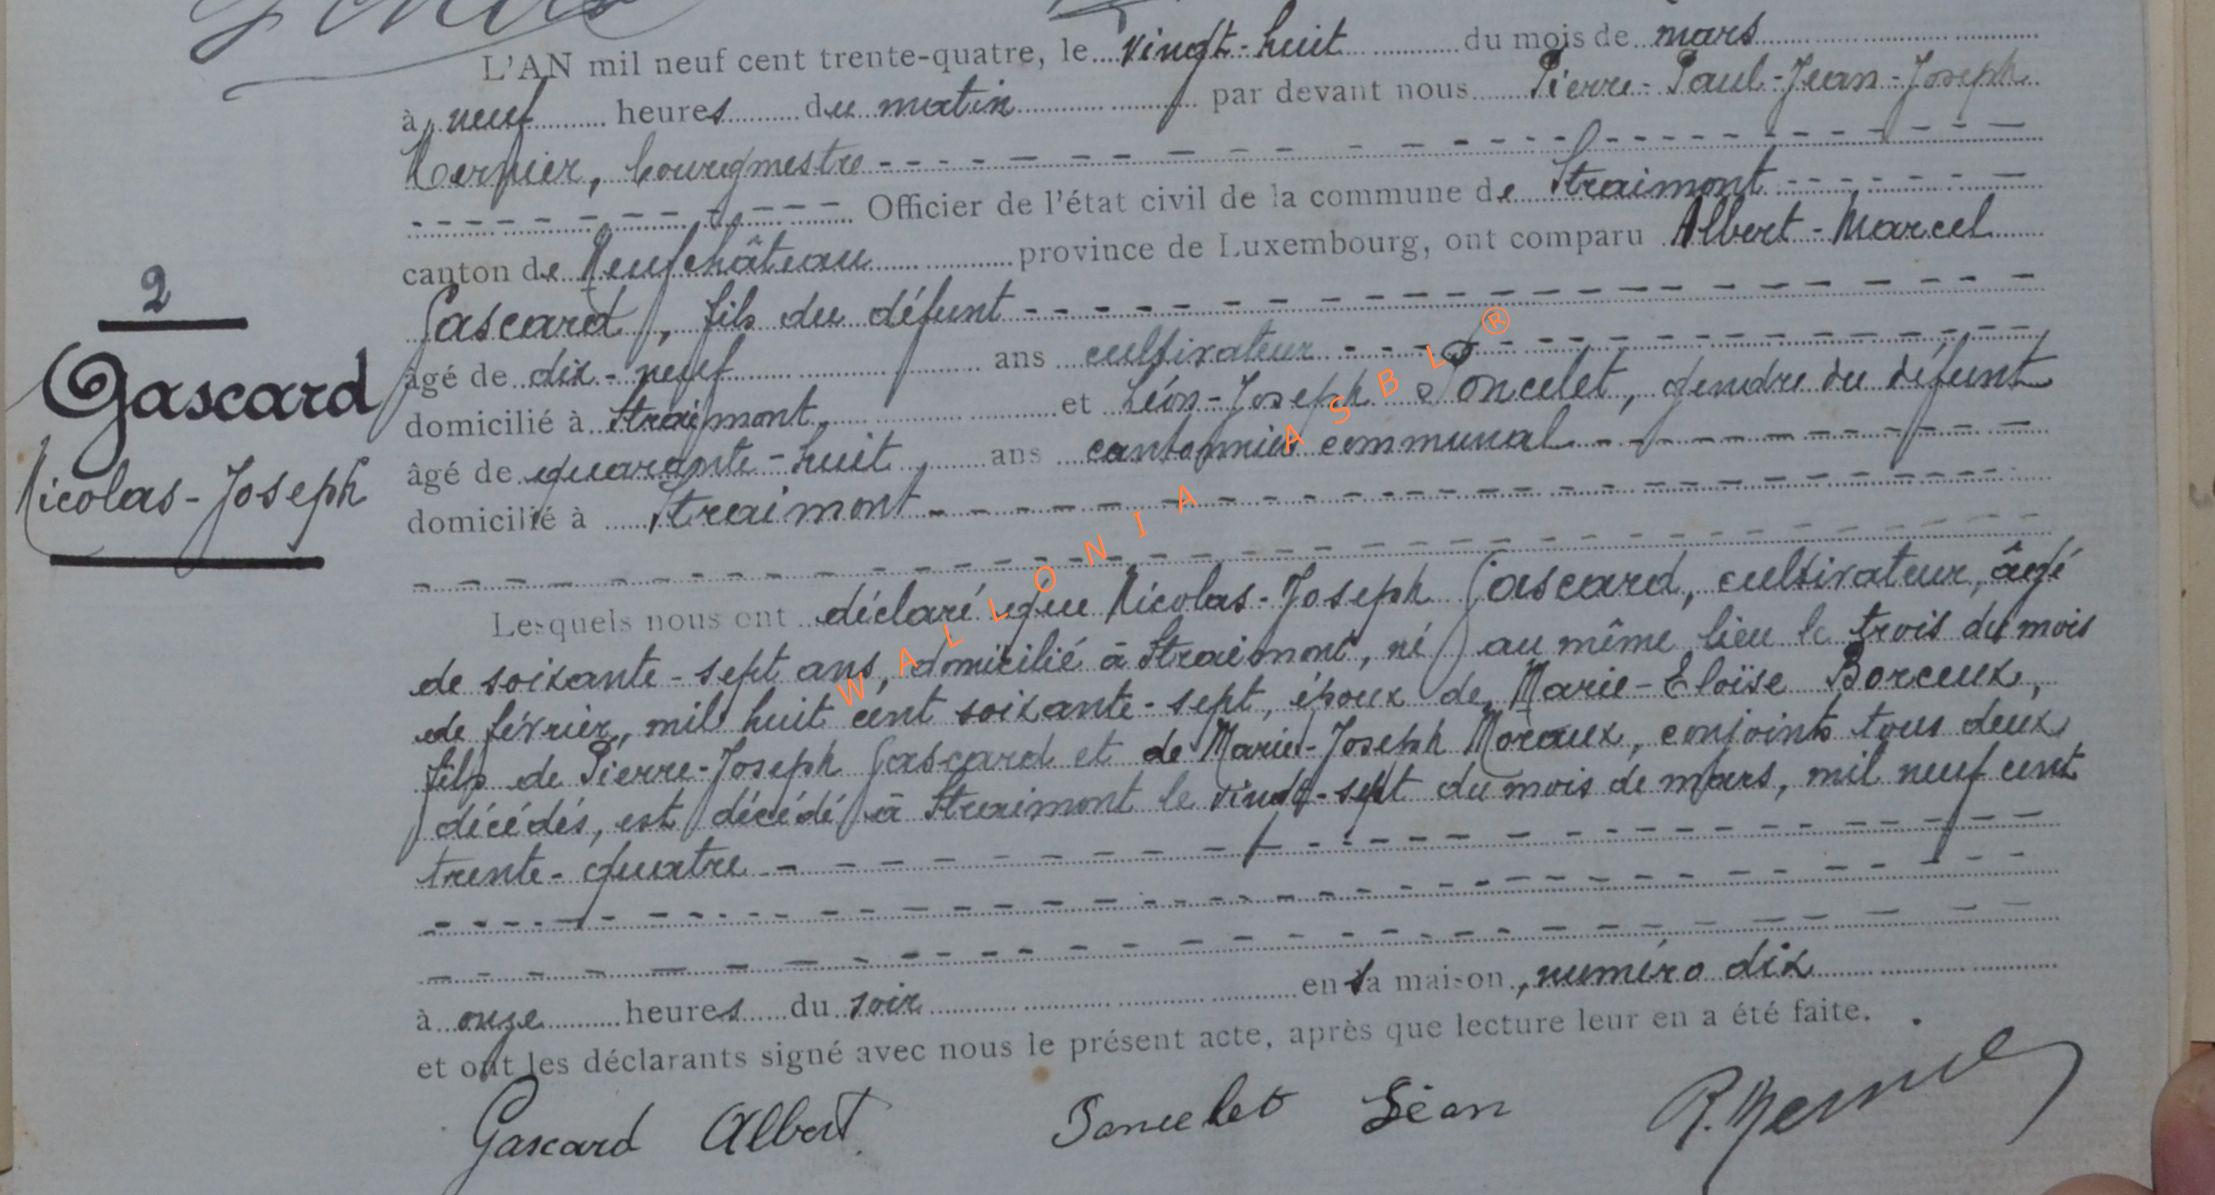 L'AN mil neuf cent trente-quatre, le vingt-huit du mois de mars
à neuf heures du matin par devant nous Pierre-Paul-Jean-Joseph
Mernier, bourgmestre
Officier de l'état civil de la commune de Straimont
canton de Neufchâteau province de Luxembourg, ont comparu Albert-Marcel
Gascard, fils du défunt
âgé de dix-neuf ans cultivateur
domicilié à Straimont, et Léon-Joseph Poncelet, gendre du défunt
âgé de quarante-huit, ans cantonnier communal
domicilié à Straimont
2
Gascard
Nicolas-Joseph
Lesquels nous ont déclaré que Nicolas-Joseph Gascard, cultivateur, âgé
de soixante-sept ans, domicilié à Straimont, né au même lieu le trois du mois
de février, mil huit cent soixante-sept, époux de Marie-Eloïse Borceux,
fils de Pierre-Joseph Gascard et de Marie-Joseph Moraux, conjoints tous deux
décédés, est décédé à Straimont le vingt-sept du mois de mars, mil neuf cent
trente-quatre
à onze heures du soir en sa maison, numéro dix
et ont les déclarants signé avec nous le présent acte, après que lecture leur en a été faite.
Gascard Albert Poncelet Léon P. Mernier
WALLONIA ASBL ®